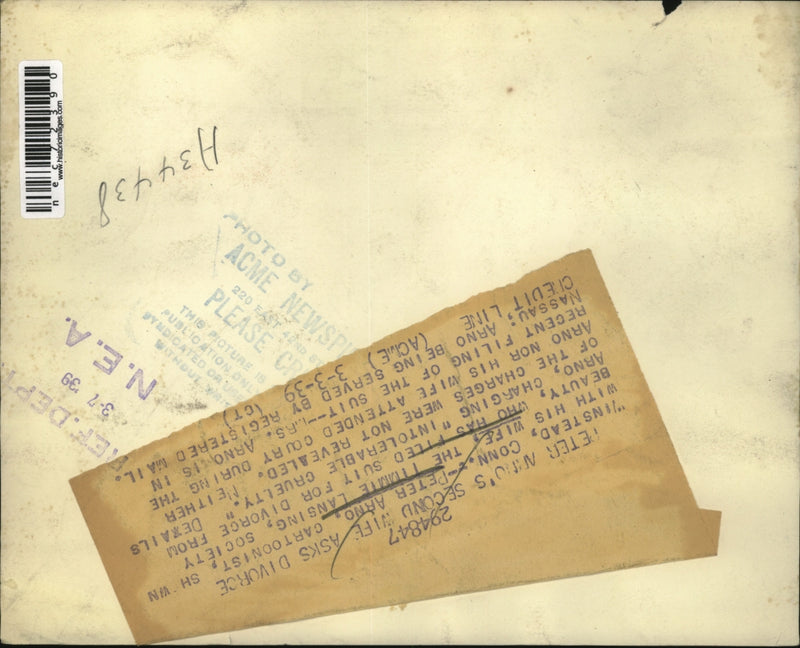 nec72390
www.historicimages.com
H34438
PHOTO BY
ACME NEWSPI
220 EAST 42ND ST
PLEASE CR
THIS PICTURE IS
PUBLICATION ONLY
SYNDICATED OR
WITHOUT
REF. DEPT.
3-7 '39
N.E.A.
294847
PETER ARNO'S SECOND WIFE ASKS DIVORCE
WINSTEAD, CONN.--PETER ARNO, CARTOONIST, SHOWN
WITH HIS WIFE, THE TIMMIE LANSING, SOCIETY
BEAUTY, WHO HAS FILED SUIT FOR DIVORCE FROM
ARNO, CHARGING "INTOLERABLE CRUELTY." DETAILS
OF THE CHARGES WERE NOT REVEALED. NEITHER
ARNO NOR HIS WIFE ATTENDED COURT DURING THE
RECENT FILING OF THE SUIT--MRS. ARNO IS IN
NASSAU; ARNO BEING SERVED BY REGISTERED MAIL.
CREDIT LINE (ACME) 3-3-39 (CT)